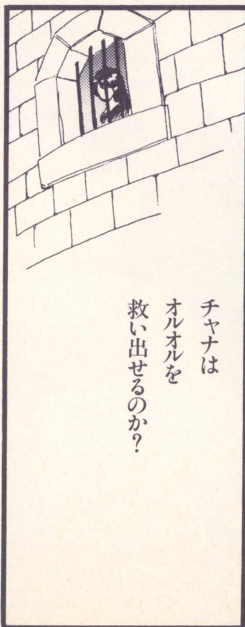 チャナは
オルオルを
救い出せるのか？